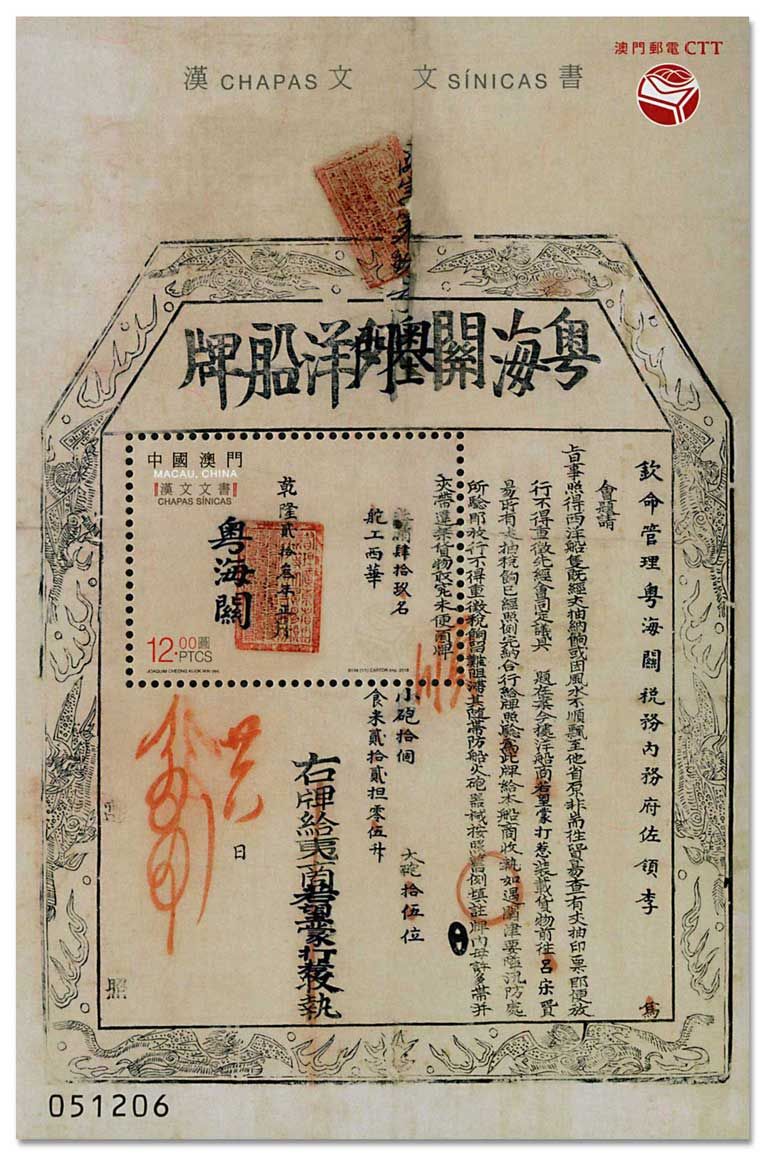 漢 CHAPAS 文 文 SÍNICAS 書
澳門郵電 CTT
粵海關 洋船牌
欽命管理粵海關稅務內務府佐領李 為
會題請
旨事照得西洋船隻既經丈抽納餉或因風水不順飄至他省原非常往貿易查有丈抽印票即便放
行不得重徵先經會同定議具 題在案今據洋船商若望蒙打惹裝載貨物前往呂宋貿
易所有丈抽稅餉已經照例完納合行給牌照驗為此牌給本船商收執如遇關津要隘汛防處
所驗即放行不得重徵稅餉留難阻滯其隨帶防船火砲器械按照舊例填註牌內毋許多帶并
夾帶違禁貨物取究未便 牌
梢肆拾玖名 小砲拾個 大砲拾伍位
舵工西華 食米貳拾貳担零伍升
右牌給夷商若望蒙打惹執
乾隆貳拾叁年正月 日
粵海關
照
中國澳門
MACAU, CHINA
漢文文書
CHAPAS SÍNICAS
12.00圓
PTCS
051206